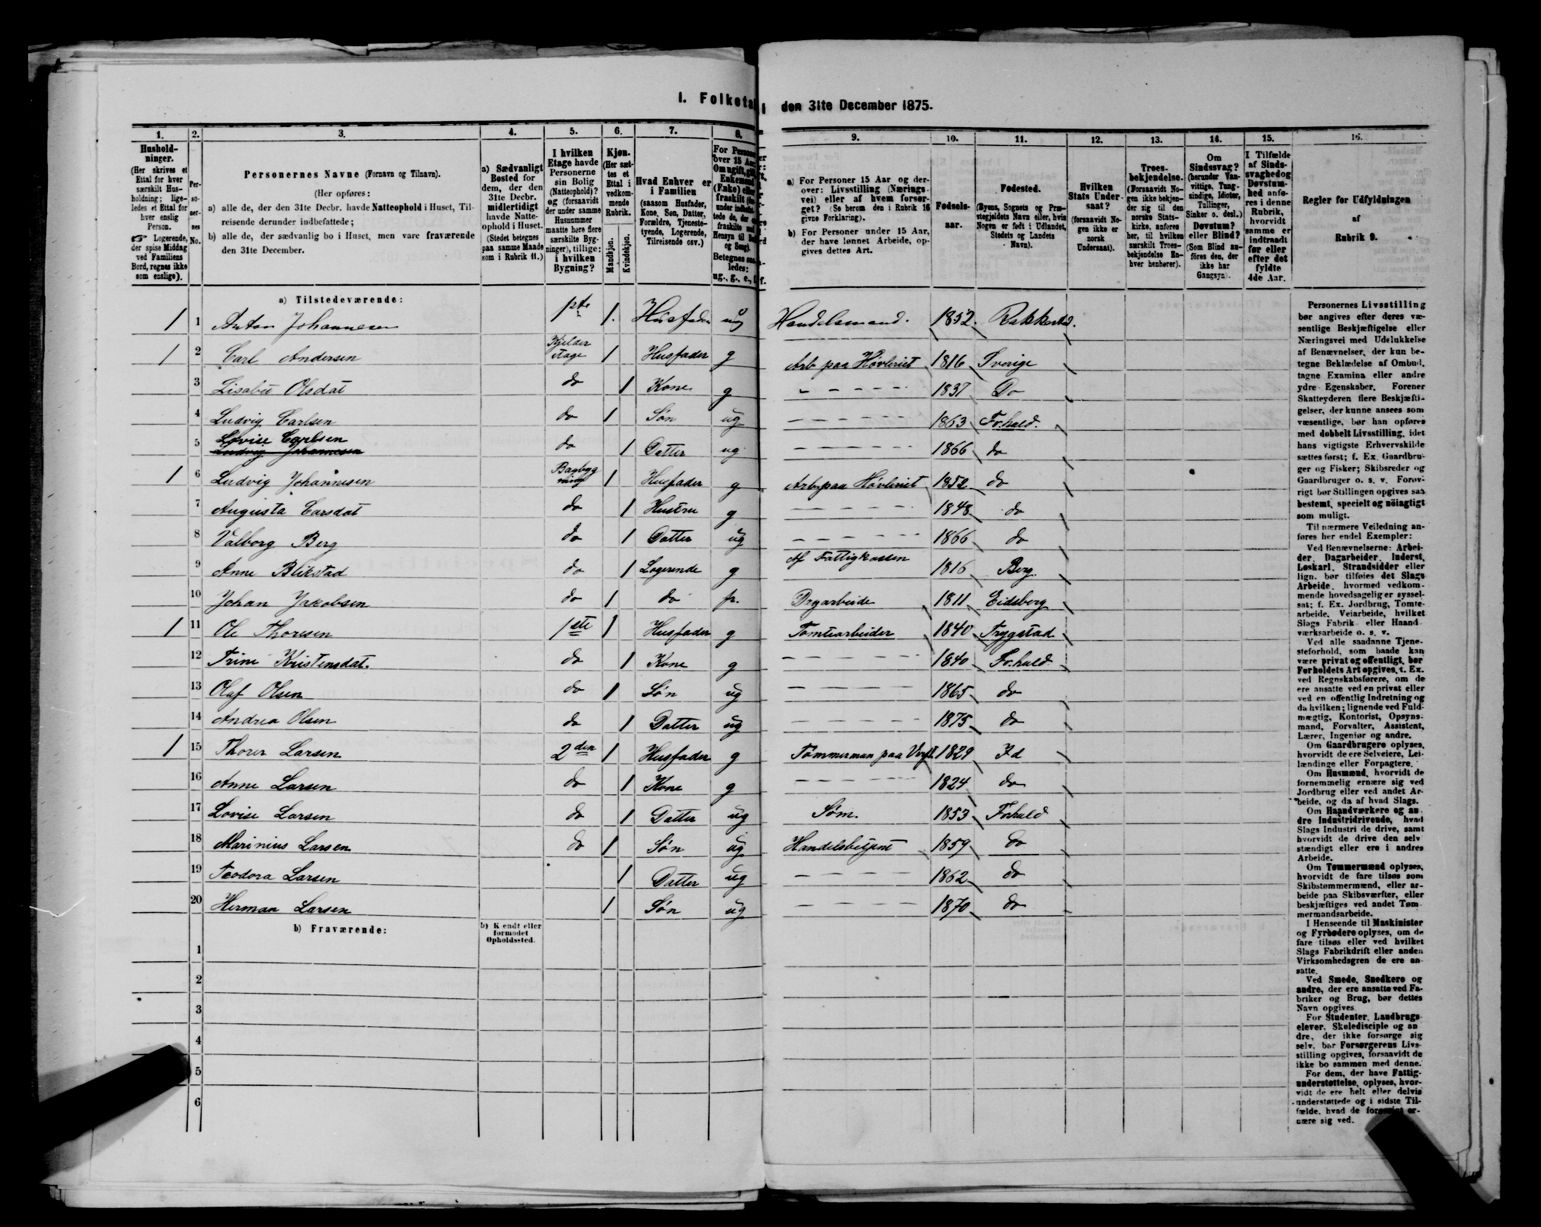 I. Folketal
den 31te December 1875.
1. 2. 3. 4. 5. 6. 7. 8. 9. 10. 11. 12. 13. 14. 15. 16.
Hushold-
ninger.
(Her skrives et
Ettal for hver
særskilt Hus-
holdning; lige-
ledes et Ettal for
hver enslig
Person.
☞ Logerende,
der spise Middag
ved Familiens
Bord, regnes ikke
som enslige).
Per-
so-
ner-
nes
No.
Personernes Navne (Fornavn og Tilnavn).
(Her opføres:
a) alle de, der den 31te Decbr. havde Natteophold i Huset, Til-
reisende derunder indbefattede;
b) alle de, der sædvanlig bo i Huset, men vare fraværende
den 31te December.
a) Sædvanligt
Bosted for
dem, der den
31te Decbr.
midlertidigt
havde Natte-
ophold i Huset.
(Stedet betegnes
paa samme Maade
som i Rubrik 11.)
I hvilken
Etage havde
Personerne
sin Bolig
(Natteophold)?
og (forsaavidt
der under samme
Husnummer
maatte høre flere
særskilte Byg-
ninger), tillige:
i hvilken
Bygning?
Kjøn.
(Her sæt-
tes et
Ettal i
vedkom-
mende
Rubrik.
Mandkjøn.
Kvindekjøn.
Hvad Enhver er
i Familien
(saasom Husfader,
Kone, Søn, Datter,
Forældre, Tjeneste-
tyende, Logerende,
Tilreisende osv.)
For Personer
over 15 Aar
a) For Personer 15 Aar og der-
over: Livsstilling (Nærings-
vei) eller af hvem forsør-
get? (Se herom den i Rubrik 16
givne Forklaring).
b) For Personer under 15 Aar,
der have lønnet Arbeide, op-
gives dettes Art.
Fødsels-
aar.
Fødested.
(Byens, Sognets og Præ-
stegjeldets Navn eller, hvis
Nogen er født i Udlandet,
Stedets og Landets
Navn).
Hvilken
Stats Under-
saat?
(forsaavidt No-
gen ikke er
norsk
Undersaat).
Troes-
bekjendelse.
(Forsaavidt No-
gen ikke bekjen-
der sig til den
norske Stats-
kirke, anføres
her, til hvilken
særskilt Troes-
bekjendelse En-
hver henhører).
Om
Sindssvag?
(herunder Van-
vittige, Tung-
sindige, Idioter,
Tullinger,
Sinker o. desl.)
Døvstum?
eller Blind?
(Som Blind an-
føres den, der
ikke har
Gangsyn).
I Tilfælde
af Sinds-
svaghed og
Døvstum-
hed anfø-
res i denne
Rubrik,
hvorvidt
samme er
indtraadt
før eller
efter det
fyldte
4de Aar.
Regler for Udfyldningen
af
Rubrik 9.
a) Tilstedeværende:
1 1 Anton Johannesen 1ste 1. Husfader ug Handelsmand. 1852 Rakkestad.
1 2 Carl Andersen Kjelder etage 1 Husfader g Arb paa Høvleriet 1816 Sverige
3 Lisabet Olsdat do 1 Kone g 1837 Do
4 Ludvig Carlsen do 1 Søn ug 1863 Fr.hald.
5 Lovise Carlsen do 1 Datter ug 1866 do
1 6 Ludvig Johannesen Bagbygning 1 Husfader g Arb paa Høvleriet 1852 do
7 Augusta Larsdat do 1 Hustru g 1843 do
8 Valborg Berg do 1 Datter ug 1866 do
9 Anne Blikstad do 1 Logerende g Af Fattigkassen 1816 Berg
10 Johan Jakobsen do 1 do fr. Dagarbeide 1811 Eidsberg
1 11 Ole Thoresen 1ste 1 Husfader g Tomtearbeider 1840 Trygstad
12 Trine Kristensdat. do 1 Kone g 1840 Fr.hald
13 Olaf Olsen do 1 Søn ug 1865 do
14 Andrea Olsen do 1 Datter ug 1875 do
1 15 Thorer Larsen 2den 1 Husfader g Tømmerman paa Verft. 1829 Id
16 Anne Larsen do 1 Kone g 1824 do
17 Lovise Larsen do 1 Datter ug Søm. 1853 Frhald
18 Marinius Larsen do 1 Søn ug Handelsbetjent 1859 do
19 Teodora Larsen 1 Datter ug 1862 do
20 Herman Larsen 1 Søn ug 1870 do
b) Fraværende:
b) Kjendt eller
formodet
Opholdssted.
1
2
3
4
5
6
Personernes Livsstilling
bør angives efter deres væ-
sentlige Beskjæftigelse eller
Næringsvei med Udelukkelse
af Benævnelser, der kun be-
tegne Beklædelse af Ombud,
tagne Examina eller andre
ydre Egenskaber. Forener
Skatteyderen flere Beskjæfti-
gelser, der kunne ansees som
væsentlige, bør han opføres
med dobbelt Livsstilling, idet
hans vigtigste Erhvervskilde
sættes først; f. Ex. Gaardbru-
ger og Fisker; Skibsreder og
Gaardbruger o. s. v. Forøv-
rigt bør Stillingen opgives saa
bestemt, specielt og nöiagtigt
som muligt.
Til nærmere Veiledning an-
føres her endel Exempler:
Ved Benævnelserne: Arbei-
der, Dagarbeider, Inderst,
Løskarl, Strandsidder eller
lign. bør tilføies det Slags
Arbeide, hvormed vedkom-
mende hovedsagelig er syssel-
sat; f. Ex. Jordbrug, Tomte-
arbeide, Veiarbeide, hvilket
Slags Fabrik- eller Haand-
værksarbeide o. s. v.
Ved alle saadanne Tjene-
steforhold, som baade kan
være privat og offentligt, bør
Forholdets Art opgives, f. Ex.
ved Regnskabsførere, om de
ere ansatte ved en privat eller
ved en offentlig Indretning og
da hvilken; lignende ved Fuld-
mægtig, Kontorist, Opsyns-
mand, Forvalter, Assistent,
Lærer, Ingeniør og andre.
Om Gaardbrugere oplyses,
hvorvidt de ere Selveiere, Lei-
lændinge eller Forpagtere.
Om Husmænd, hvorvidt de
fornemmelig ernære sig ved
Jordbrug eller ved andet Ar-
beide, og da af hvad Slags.
Om Haandværkere og an-
dre Industridrivende, hvad
Slags Industri de drive, samt
hvorvidt de drive den selv-
stændigt eller ere i andres
Arbeide.
Om Tømmermænd oplyses,
hvorvidt de fare tilsøs som
Skibstømmermænd, eller ar-
beide paa Skibsværfter, eller
beskjæftiges ved andet Tøm-
mermandsarbeide.
I Henseende til Maskinister
og Fyrbødere oplyses, om de
fare tilsøs eller ved hvilket
Slags Fabrikdrift eller anden
Virksomhedsgren de ere an-
satte.
Ved Smede, Snedkere og
andre, der ere ansatte ved Fa-
briker og Brug, bør dettes
Navn opgives.
For Studenter, Landbrugs-
elever, Skoledisciple og an-
dre, der ikke forsørge sig
selv, bør Forsørgerens Livs-
stilling opgives, forsaavidt de
ikke bo sammen med denne.
For dem, der have Fattig-
understøttelse, oplyses, hvor-
vidt de ere helt eller delvis
understøttede og i sidste Til-
fælde, hvad de forøvrigt er-
nære sig ved.